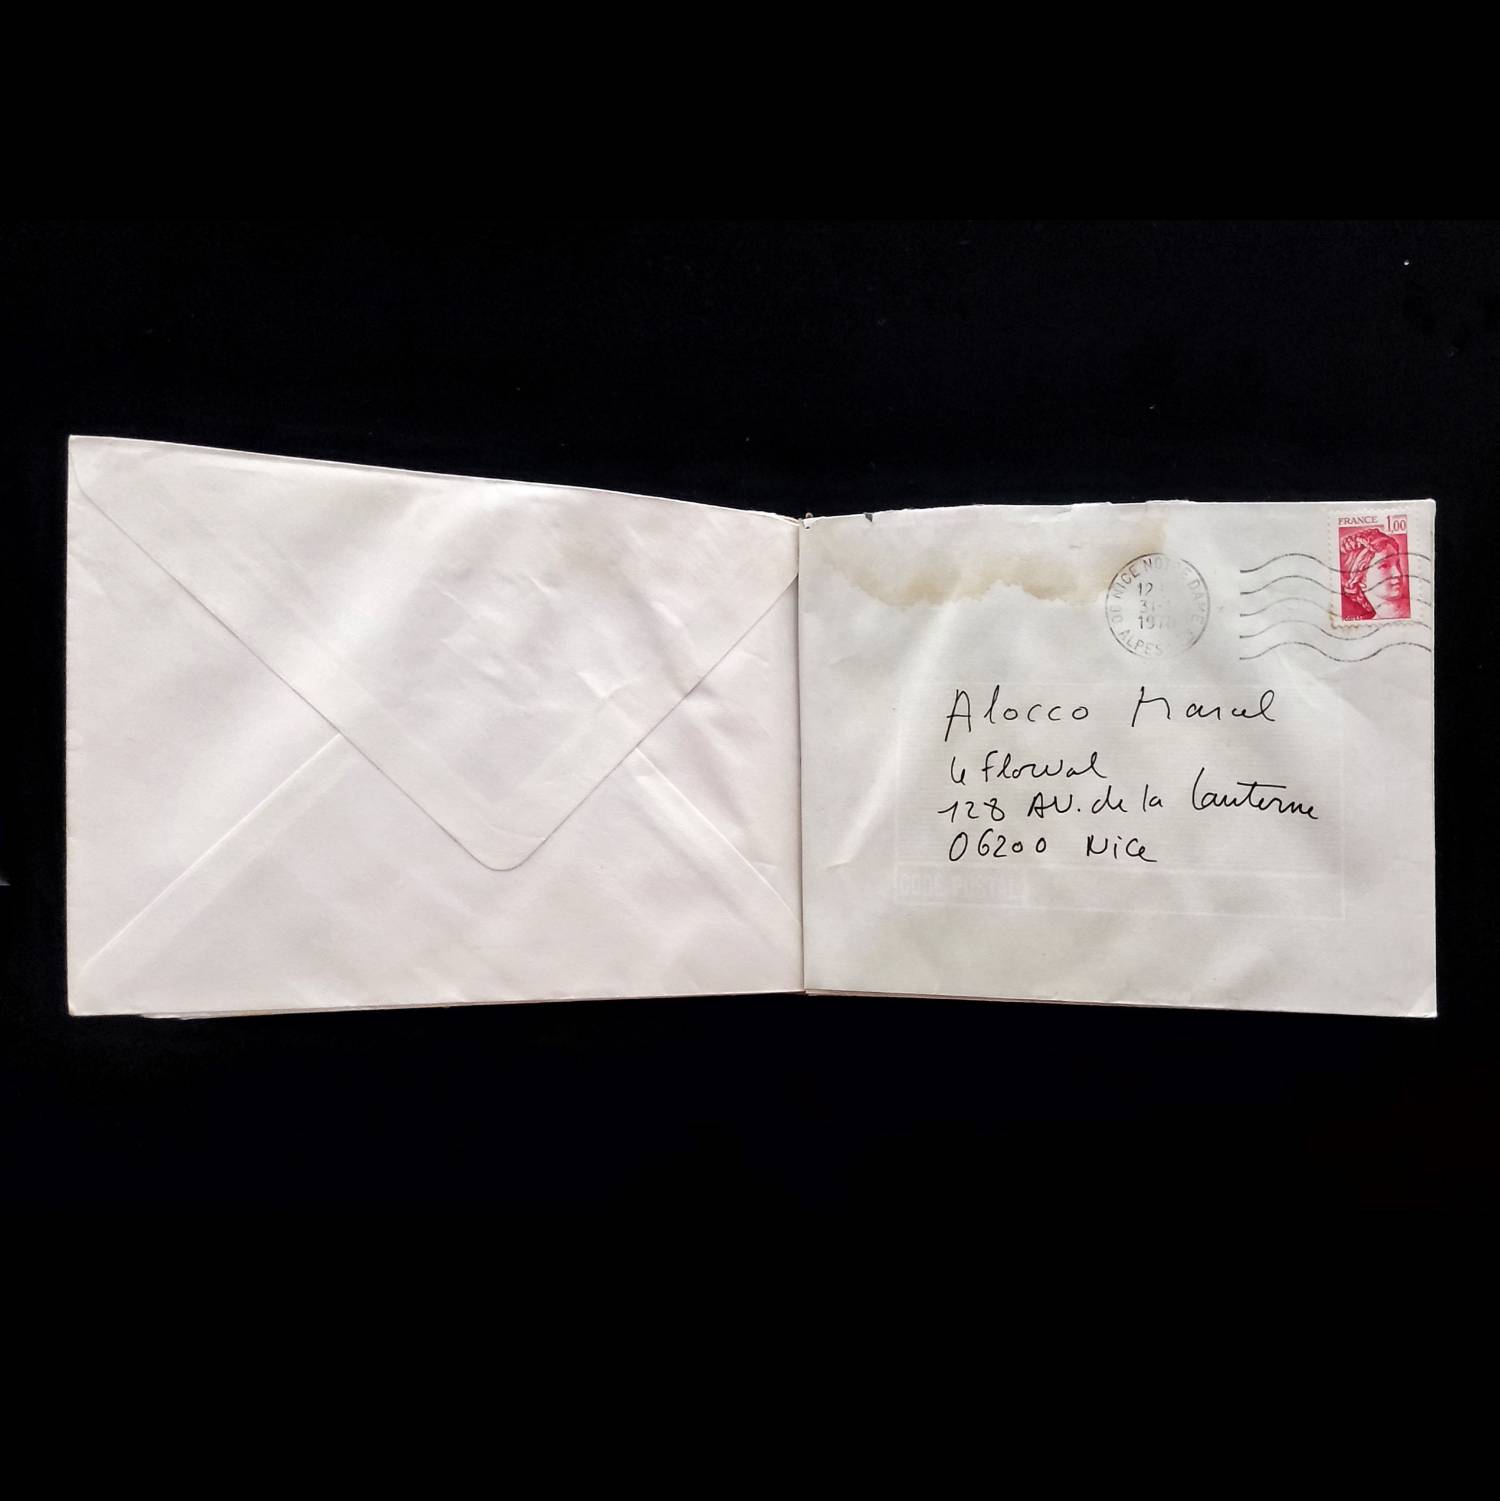 FRANCE 1,00
06 NICE NOTRE DAME
12
31
ALPES
Alocco Marcel
Le Floreal
128 AV. de la Lanterne
06200 Nice